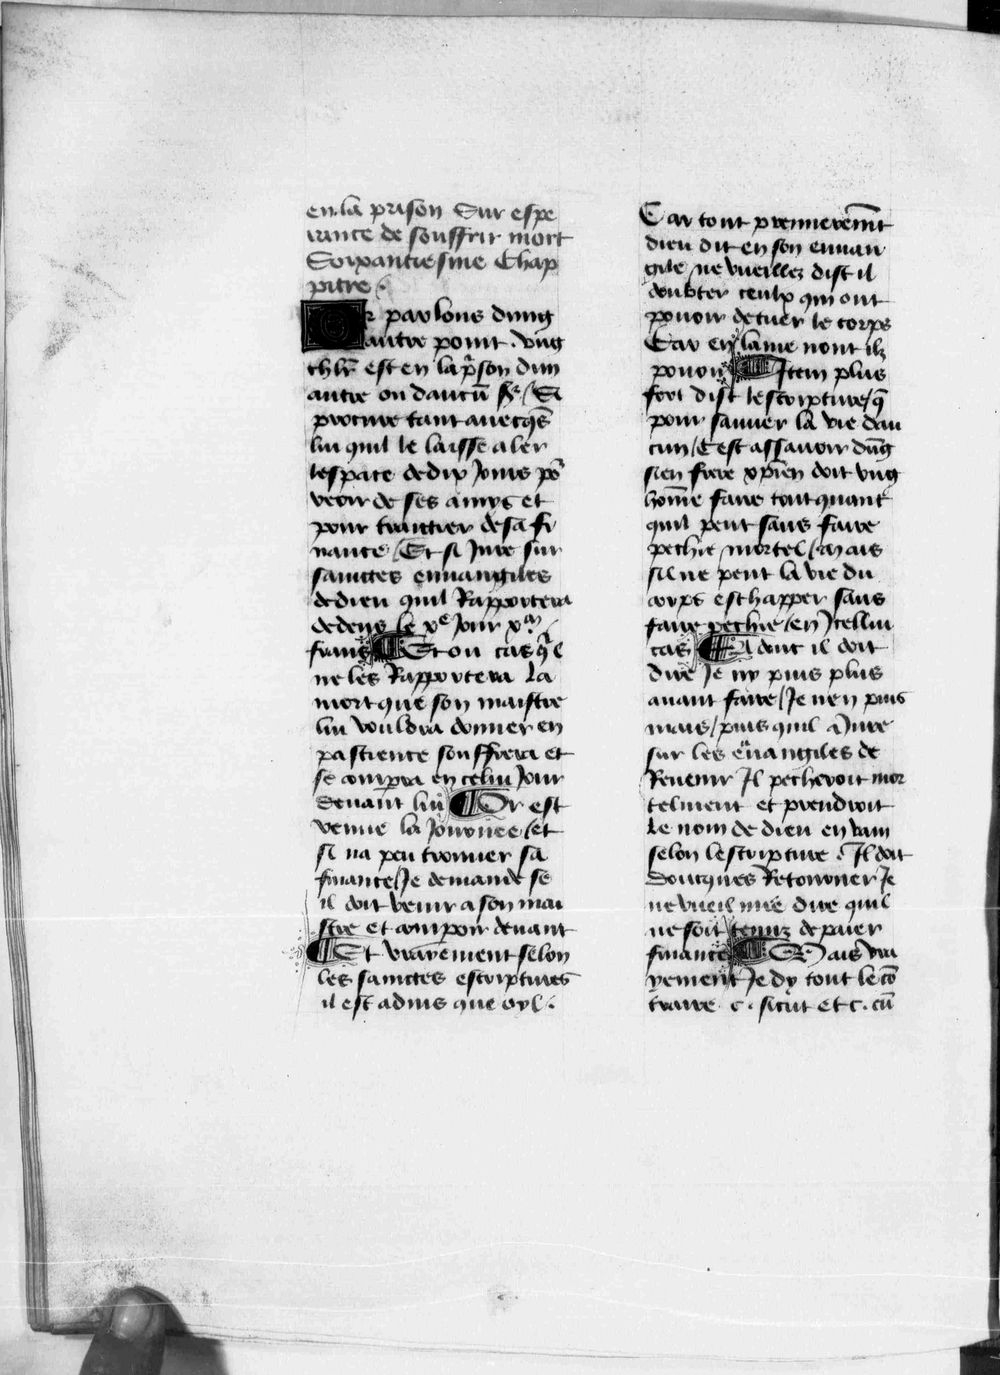 en la prison Sur espe
rance de souffrir mort
Soixantiesme Chap
pitre .
Or parlons dung
autre point . Ung
chlr̄ est en la p̃son dun
autre ou daucū sr̄ / Et
procure tant avecq̄s
lui quil le laisse aler
lespace de dix jours po᷑
veoir de ses amys et
pour traictier de sa fi
nance / Et si jure sur
sainctes euuangiles
de dieu quil Rapportera
dedens le xe jour xm
frans ¶ Et ou cas q̄l
ne les Rapportera La
mort que son maistre
lui vouldra donner en
pascience souffrera et
se comp̱ra en celui jour
devant lui ¶ Or est
venue la journee / et
si na peu trouver sa
finance / Je demande se
il doit venir a son mai
stre et compoir devant
¶ Et vraiement selon
les sainctes escriptures
il est advis que oyl .
Car tout premieremt̄
dieu dit en son euuan
gile ne vueillez dist il
doubter ceulx qui ont
pouoir de tuer le corps
Car en lame nont ilz
pouoir ¶ Item plus
fort dist lescripture / q̄
pour sauver la vie dau
cun / Cest assavoir dūg
sien frere xp̄ien doit ung
hōme faire tout quant
quil peut sans faire
pechie mortel / mais
sil ne peut la vie du
corps eschapper sans
faire pechie / en Jcellui
cas ¶ A dont il doit
dire Je ny puis plus
avant faire / Je nen puis
mais / puis quil a Jure
sur les ēuangiles de
Revenir Il pecheroit mor
telment et prendroit
le nom de dieu en vain
selon lescripture . Il doit
doncques Retourner Je
ne vueil mie dire quil
ne soit tenuz de paier
finance ¶ Mais vra
yement Je dy tout le cō
traire c . sicut et c . cū